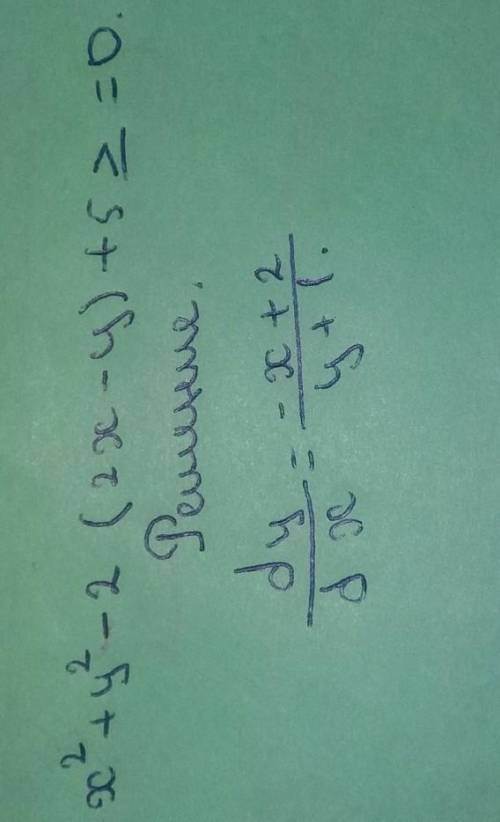 x² + y² - 2 (2x - y) + 5 ≥ = 0.
Решение.
dy/dx = -x + 2/y + 1.